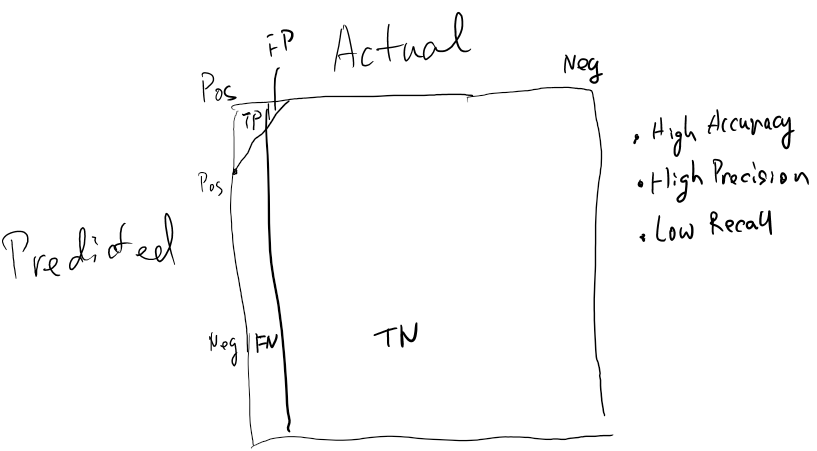 FP
Actual
Pos
Neg
TP
Pos
Predicted
Neg
FN
TN
• High Accuracy
• High Precision
• Low Recall